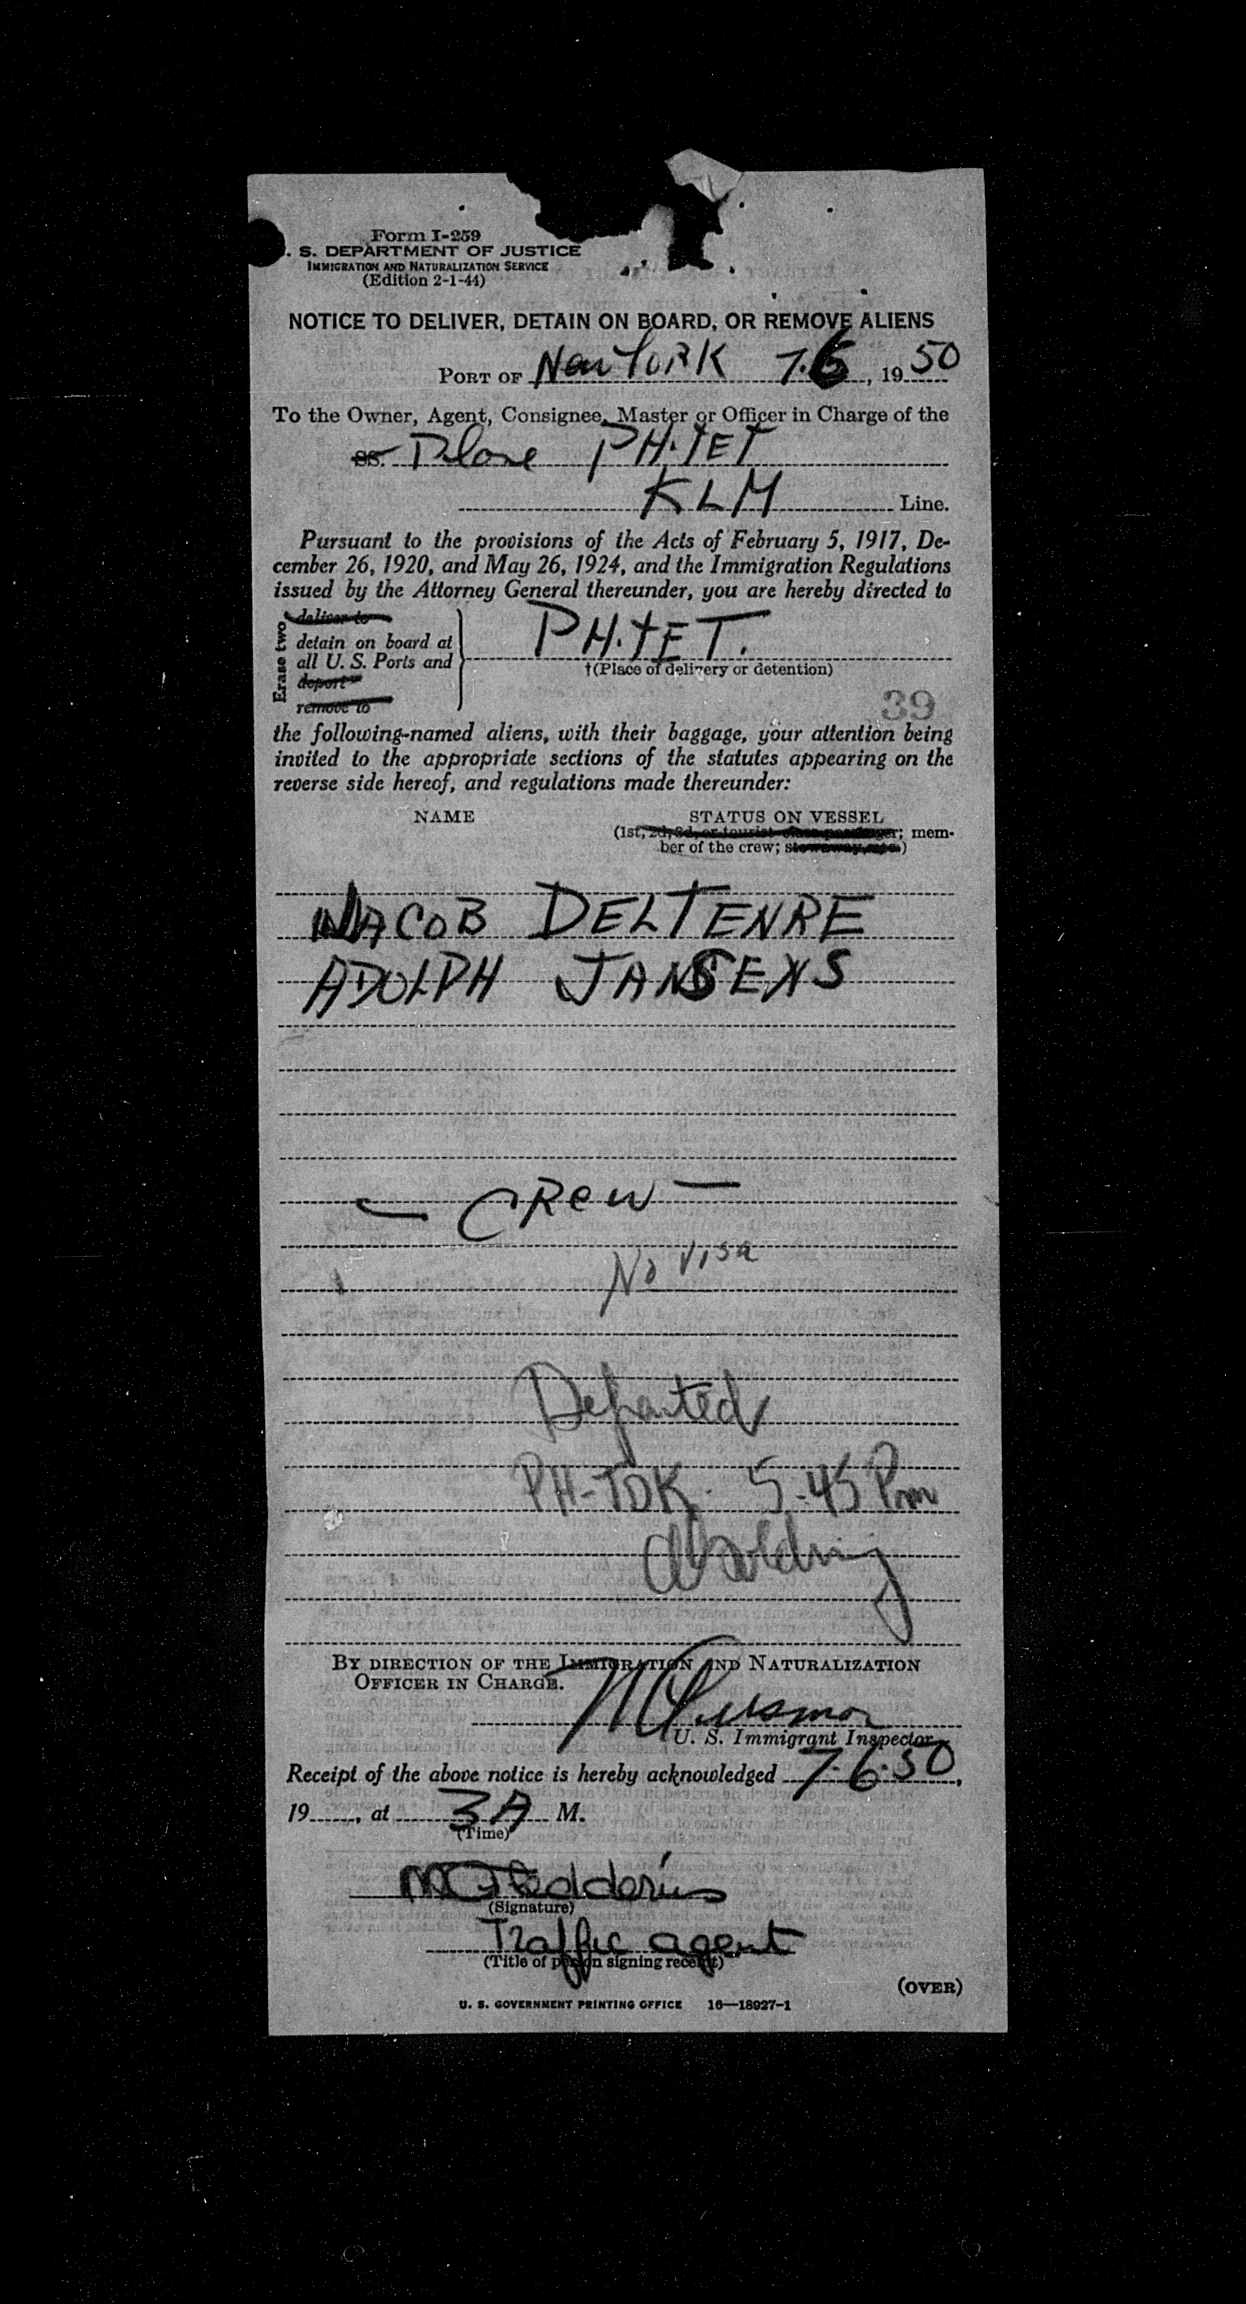 Form I-259
. S. DEPARTMENT OF JUSTICE
IMMIGRATION AND NATURALIZATION SERVICE
(Edition 2-1-44)
NOTICE TO DELIVER, DETAIN ON BOARD, OR REMOVE ALIENS
PORT OF New YORK 7.6, 19 50
To the Owner, Agent, Consignee, Master or Officer in Charge of the
SS. Plane PH.TET
KLM Line.
Pursuant to the provisions of the Acts of February 5, 1917, De-
cember 26, 1920, and May 26, 1924, and the Immigration Regulations
issued by the Attorney General thereunder, you are hereby directed to
Erase two
deliver to
detain on board at
all U. S. Ports and
deport
remove to
PH.TET.
†(Place of delivery or detention)
39
the following-named aliens, with their baggage, your attention being
invited to the appropriate sections of the statutes appearing on the
reverse side hereof, and regulations made thereunder:
NAME STATUS ON VESSEL
(1st, 2d, 3d, or tourist class passenger; mem-
ber of the crew; stowaway, etc.)
JACOB DELTENRE
ADOLPH JANSENS
— CREW —
No Visa
Departed
PH-TDK. 5-45 Pm
BY DIRECTION OF THE IMMIGRATION AND NATURALIZATION
OFFICER IN CHARGE.
U. S. Immigrant Inspector.
Receipt of the above notice is hereby acknowledged 7.6.50,
19 , at 3A M.
(Time)
(Signature)
Traffic agent
(Title of person signing receipt)
(OVER)
U. S. GOVERNMENT PRINTING OFFICE 16—18927-1